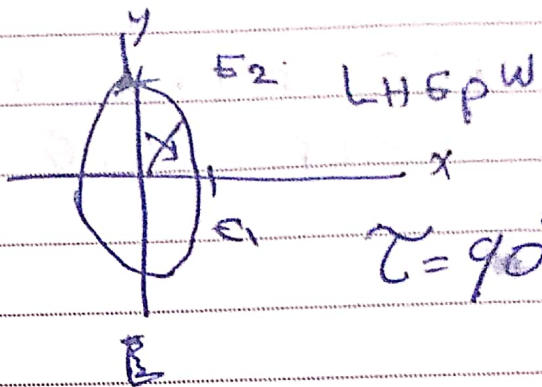 y
E2 LHEPW
x
E1
τ=90